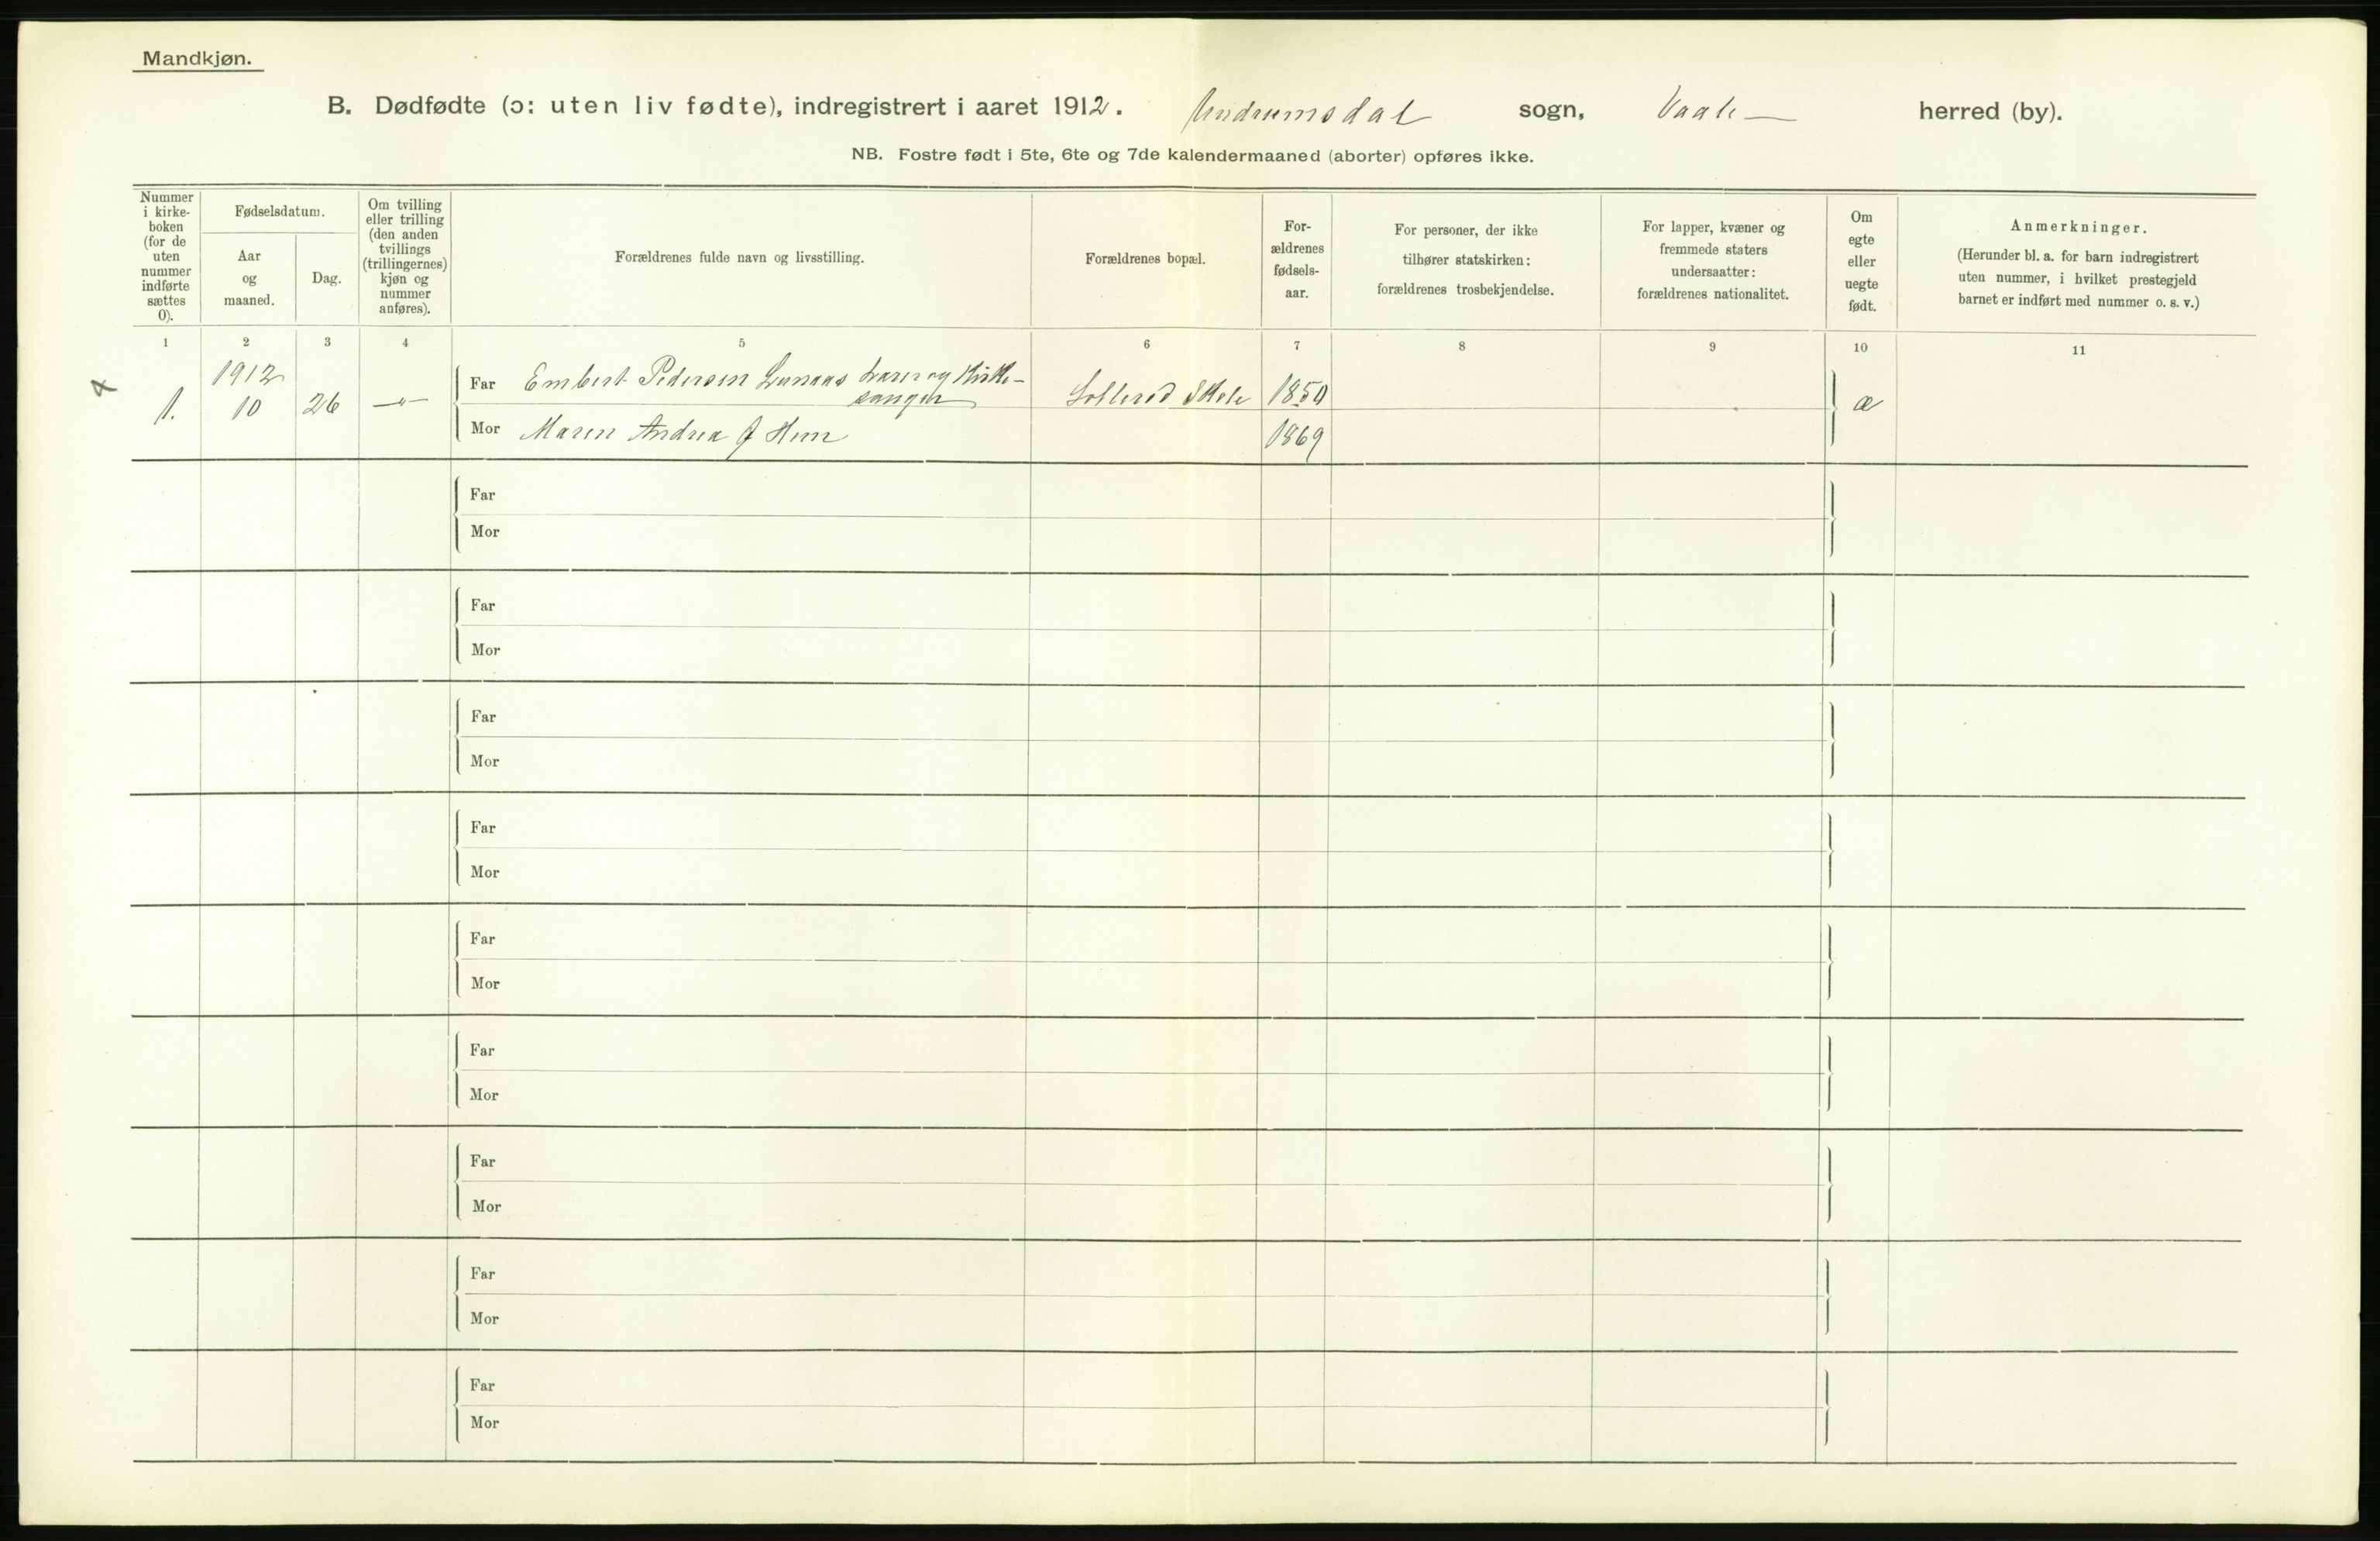 Mandkjøn.
B. Dødfødte (ɔ: uten liv fødte), indregistrert i aaret 1912. Undrumsdal sogn, Vaale herred (by).
NB. Fostre født i 5te, 6te og 7de kalendermaaned (aborter) opføres ikke.
Nummer
i kirke-
boken
(for de
uten
nummer
indførte
sættes
0).
Fødselsdatum.
Aar
og
maaned.
Dag.
Om tvilling
eller trilling
(den anden
tvillings
(trillingernes)
kjøn og
nummer
anføres).
Forældrenes fulde navn og livsstilling.
Forældrenes bopæl.
For-
ældrenes
fødsels-
aar.
For personer, der ikke
tilhører statskirken:
forældrenes trosbekjendelse.
For lapper, kvæner og
fremmede staters
undersaatter:
forældrenes nationalitet.
Om
egte
eller
uegte
født.
Anmerkninger.
(Herunder bl. a. for barn indregistrert
uten nummer, i hvilket prestegjeld
barnet er indført med nummer o. s. v.)
1 2 3 4 5 6 7 8 9 10 11
1912
1. 10 26 —"— Far Embert Pedersen Lunaas Lærer og Kirke-
sanger Sollerød Skole 1850 æ
Mor Maren Andrea J Hem 1869
Far
Mor
Far
Mor
Far
Mor
Far
Mor
Far
Mor
Far
Mor
Far
Mor
Far
Mor
Far
Mor